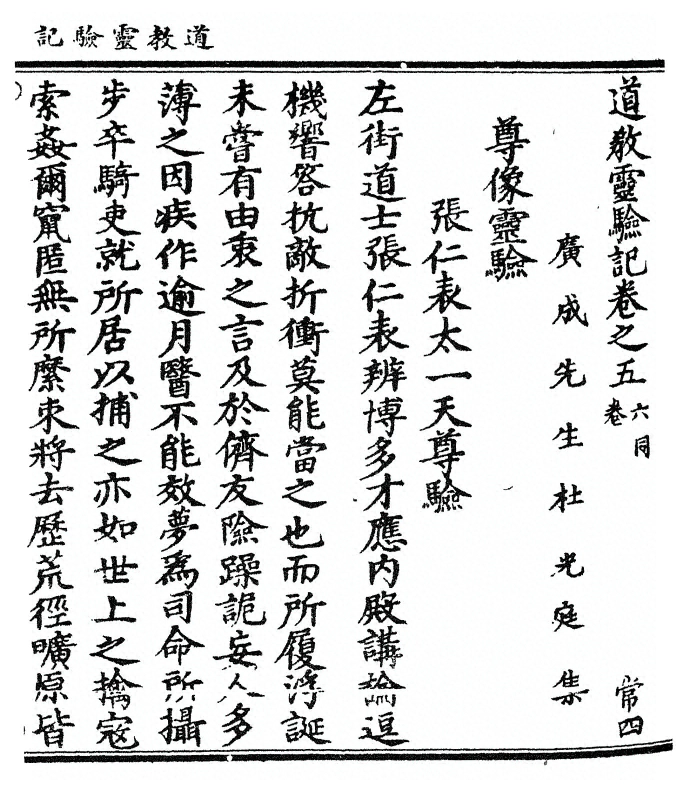 道教靈驗記
道教靈驗記卷之五 六同卷 常四
廣成先生杜光庭集
尊像靈驗
張仁表太一天尊驗
左街道士張仁表辨博多才應內殿講論逗
機響答抗敵折衝莫能當之也而所履浮誕
未嘗有由衷之言及於儕友險躁詭妄人多
薄之因疾作逾月醫不能效夢為司命所攝
步卒騎吏就所居以捕之亦如世上之擒寇
索姦爾竄匿無所縻束將去歷荒徑曠原皆